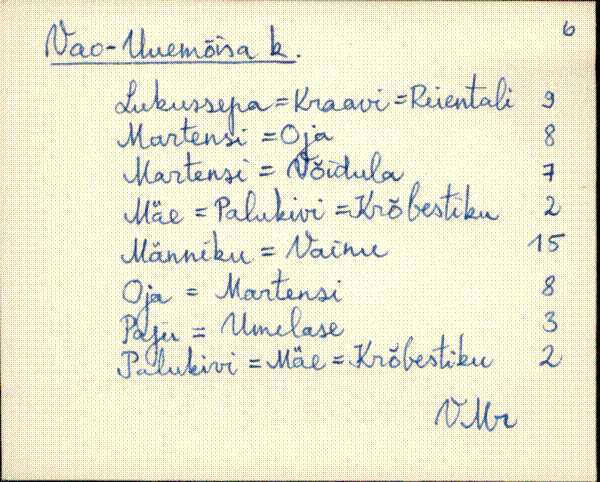 6
Vao-Uuemõisa k.
Lukussepa = Kraavi = Reientali 9
Martensi = Oja 8
Martensi = Võidula 7
Mäe = Palukivi = Krõbestiku 2
Männiku = Vainu 15
Oja = Martensi 8
Paju = Umelase 3
Palukivi = Mäe = Krõbestiku 2
VMr